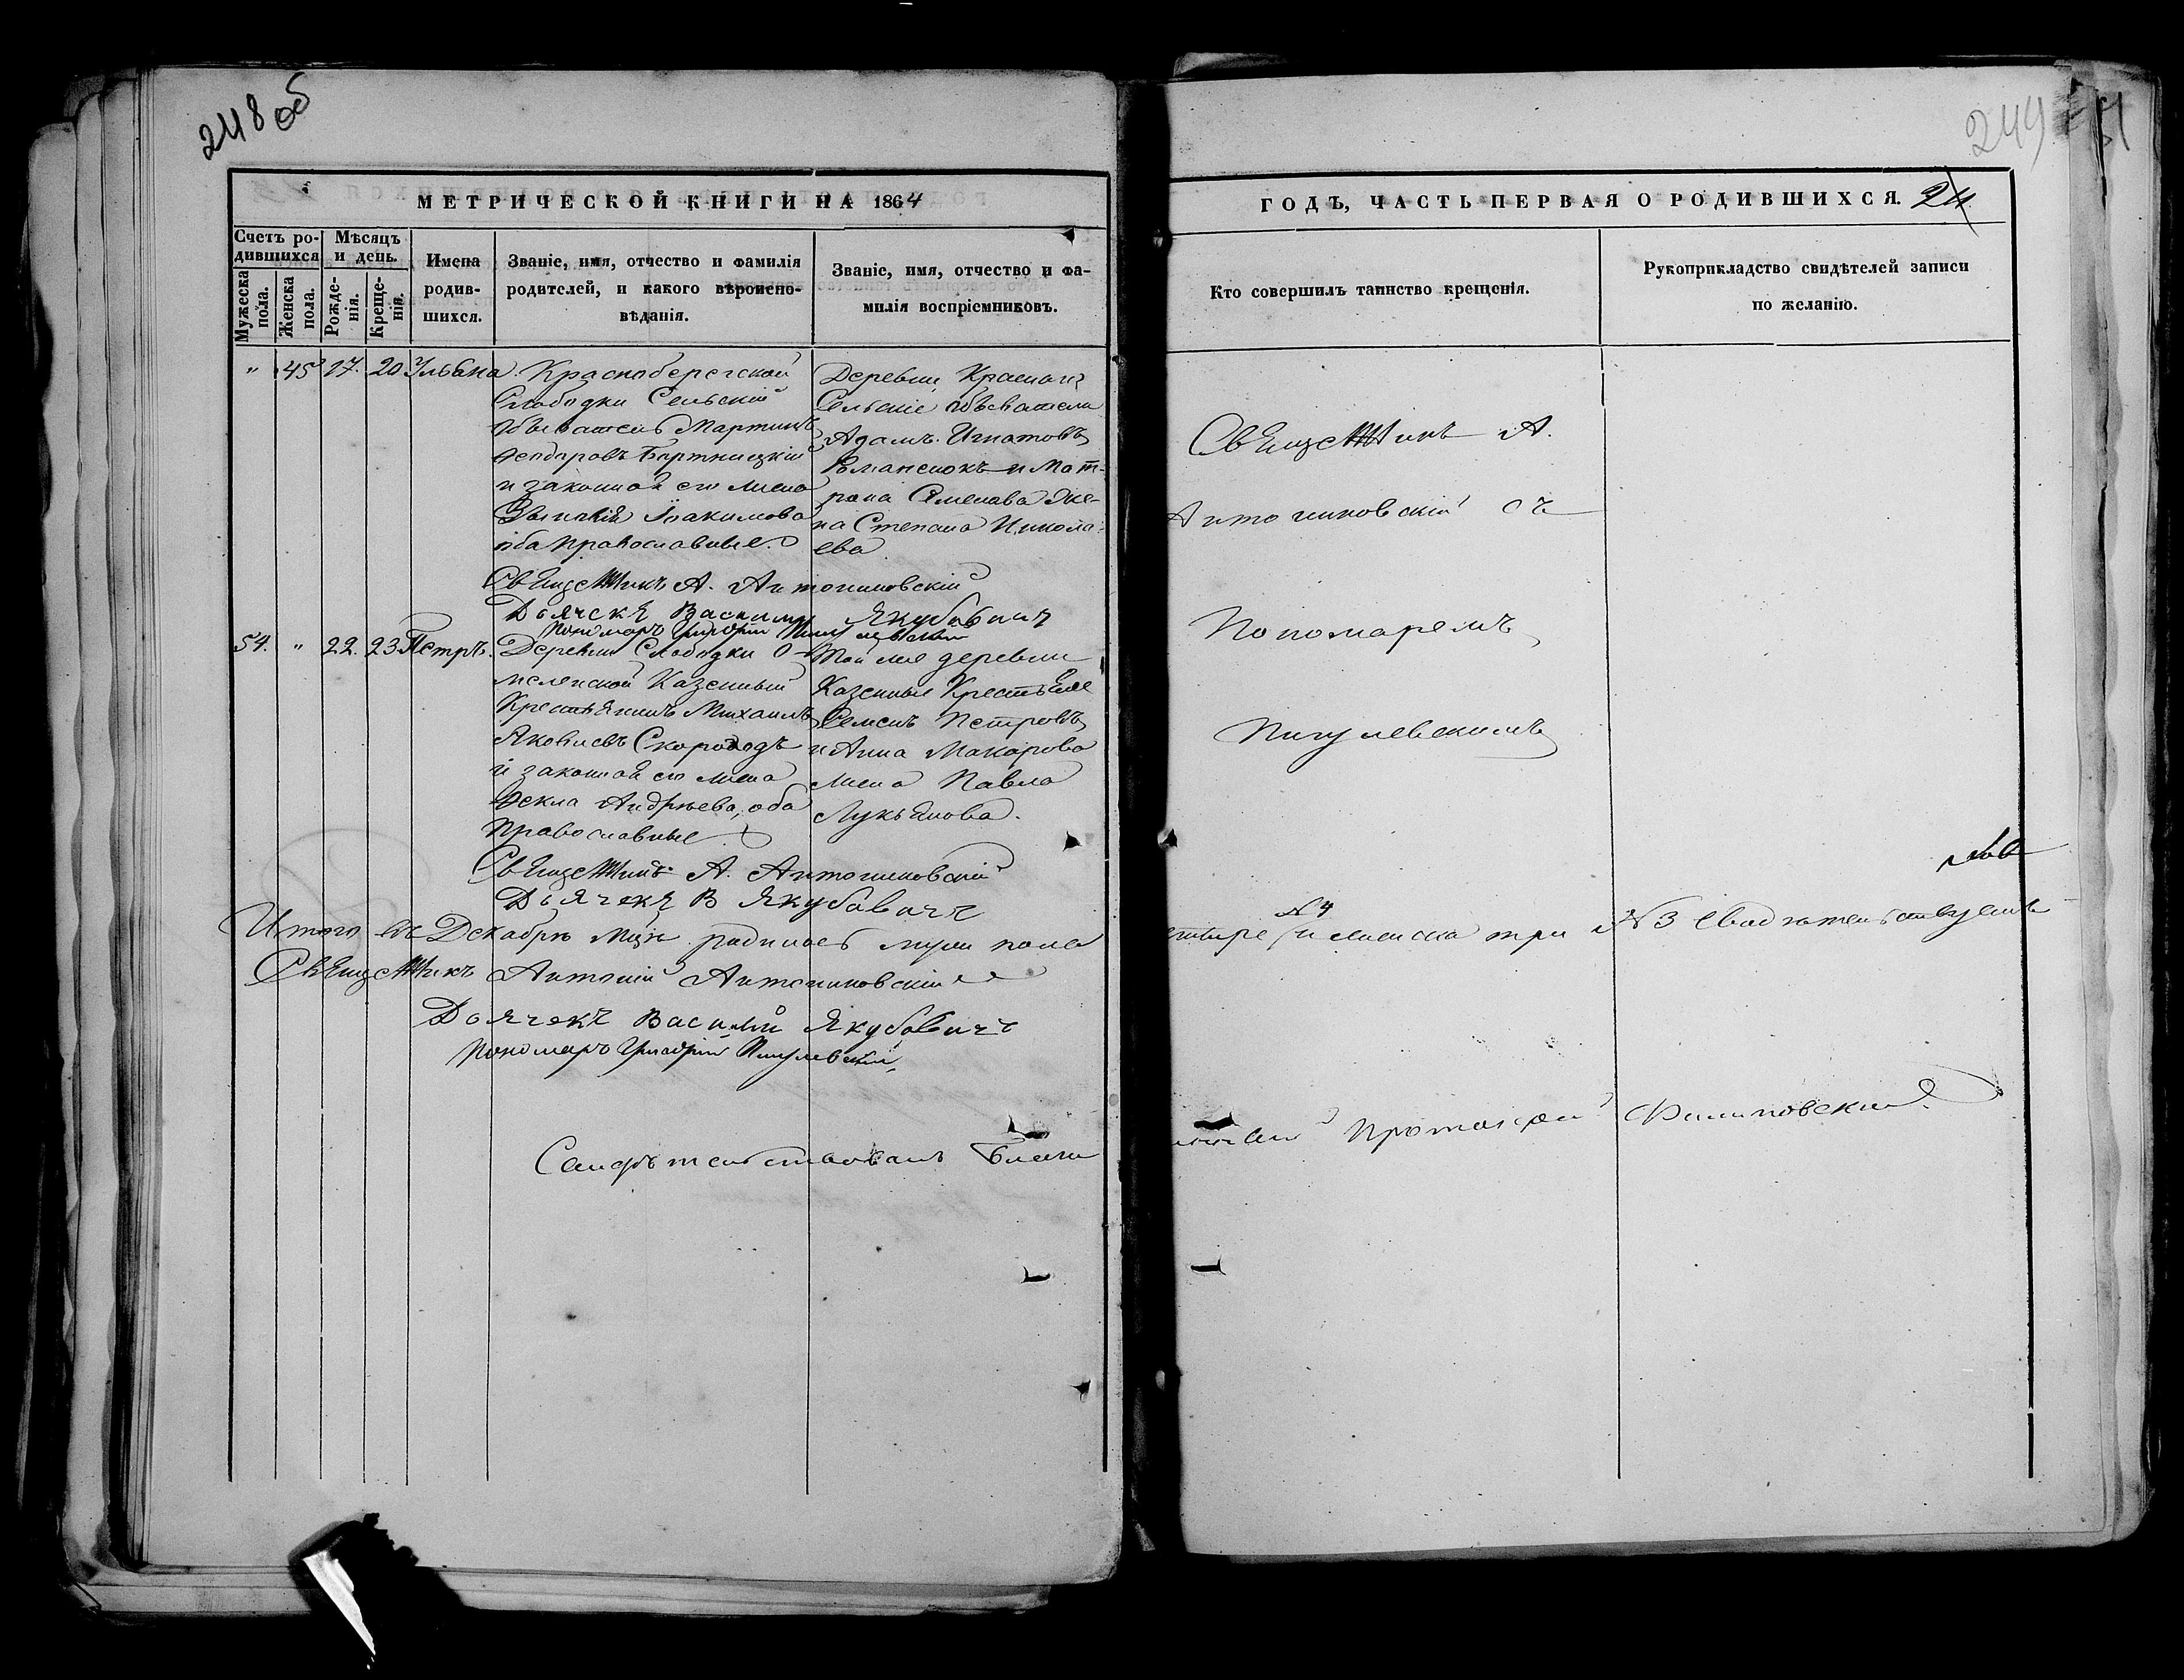 248 об
МЕТРИЧЕСКОЙ КНИГИ НА 1864
Счетъ ро-
дившихся
Мужеска
пола.
Женска
пола.
Мѣсяцъ
и день.
Рожде-
нія.
Креще-
нія.
Имена
родив-
шихся.
Званіе, имя, отчество и фамилія
родителей, и какого вѣроиспо-
вѣданія.
Званіе, имя, отчество и фа-
милія воспріемниковъ.
" 45 17. 20 Ульяна.
Красноберегской
Слободки Сельскій
обыватель Мартинъ
Феодоровъ Бартницкій
и законная его жена
Іоакимова
оба православные.
Деревни
Сельскіе обыватели
Адамъ Игнатовъ
Романенокъ и Мат-
рона Семенова же-
на Степана Никола-
ева
Священникъ А. Антониновскій
Дьячекъ Василій Якубовичъ
Пономарь Григорій Пигулевскій
54. " 22. 23 Петръ.
Деревни Слободки О-
меленской Казенный
Крестьянинъ Михаилъ
Яковлевъ Скороходъ
и законная его жена
Фекла Андреева, оба
православные
Той же деревни
Казенные Крестьяне
Семенъ Петровъ
и Анна Макарова
жена Павла
Лукьянова.
Священникъ А. Антониновскій
Дьячекъ В Якубовичъ
Итого въ Декабрѣ Мцѣ родилось муж пола
Священникъ Антоній Антониновскій
Дьячекъ Василій Якубовичъ
Пономарь Григорій Пигулевскій
249
ГОДЪ, ЧАСТЬ ПЕРВАЯ О РОДИВШИХСЯ. 24
Кто совершилъ таинство крещенія.
Рукоприкладство свидѣтелей записи
по желанію.
Священникъ А.
Антониновскій съ
Пономаремъ
Пигулевскимъ
№ 4
и женска три № 3 свидѣтельствуемъ
Протоіерей Филиповскій